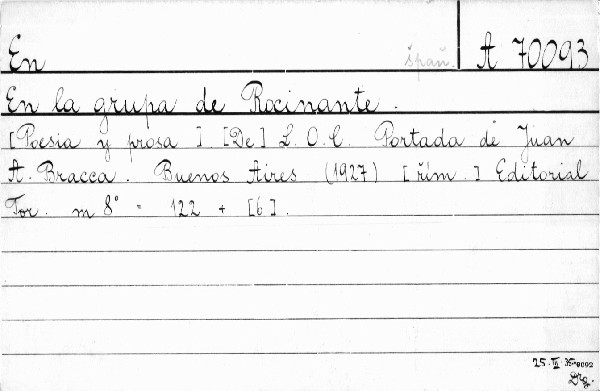 En špaň. A 70093
En la grupa de Rocinante.
[Poesia y prosa] [De] L. O. C. Portada de Juan
A. Bracca. Buenos Aires (1927) [řím.] Editorial
Tor. m 8° = 122 + [6].
25. III. 35-9092